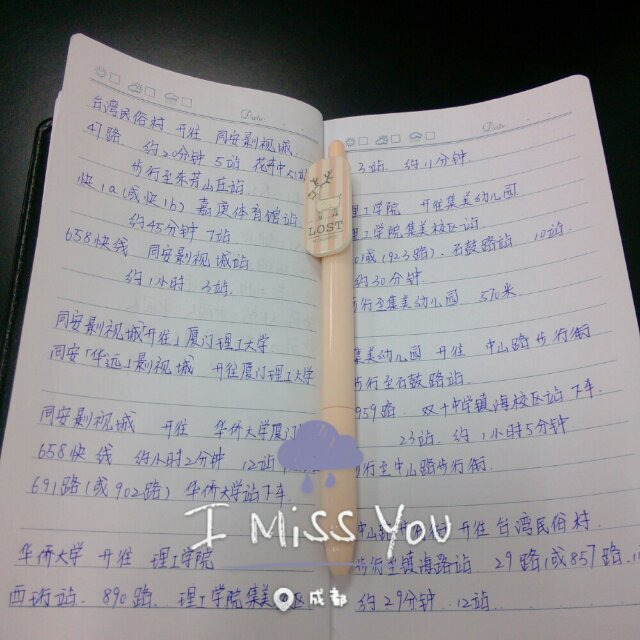 Date:
台湾民俗村 开往 同安影视城
47路 约20分钟 5站
步行至东芳山庄站
快1a(或快1b) 嘉庚体育馆站
约45分钟 7站
658快线 同安影视城站
约1小时 3站
同安影视城「开往」厦门理工大学
同安「华远」影视城 开往厦门理工大学
同安影视城 开往 华侨大学厦门
658快线 约1小时2分钟 12站
691路(或902路) 华侨大学站下车
华侨大学 开往 理工学院
西珩站 890路 理工学院集美 区
Date:
3站 约11分钟
理工学院 开往集美幼儿园
理工学院集美校区站
01或1923路) 石鼓路站 10站
约30分钟
步行至集美幼儿园 570米
集美幼儿园 开往 中山路步行街
步行至石鼓路站
959路 双十中学镇海校区站下车
23站 约1小时5分钟
步行至中山路步行街
中山路步行街开往台湾民俗村
步行至镇海路站 29路(或857路
约29分钟 12站
LOST
I Miss You
成都